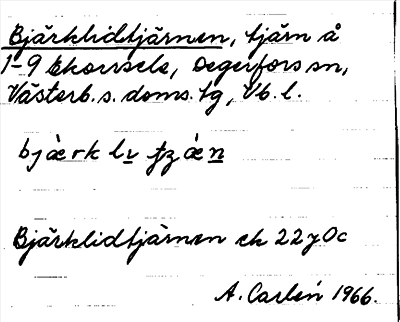 Bjärklidtjärnen, tjärn å
1-9 Ekorrsele, Degerfors sn,
Västerb. s. doms. tg, Vb. l.
Bjärklidtjärnen ek 22 J 0c
A. Carlén 1966.